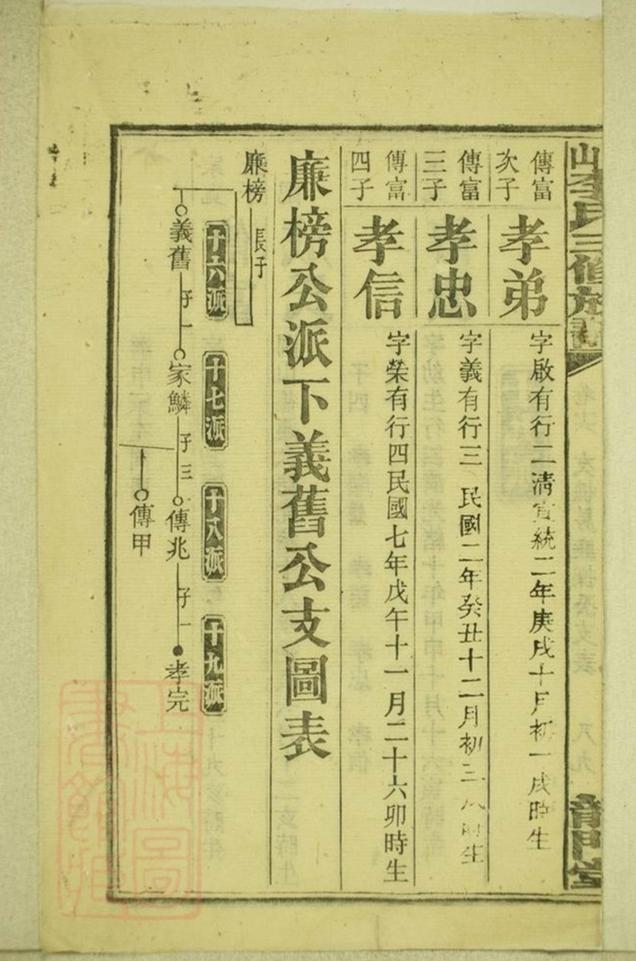 李氏三修族譜
傳富次子
孝弟
字啟有行二清宣統二年庚戌十月初一戌時生
傳富三子
孝忠
字義有行三 民國二年癸丑十二月初三 時生
傳富四子
孝信
字榮有行四民國七年戊午十一月二十六卯時生
廉榜公派下義舊公支圖表
廉榜 長子
十六派 十七派 十八派 十九派
義舊 子一 家鱗 子三 傳兆 子一 孝完
傳甲
龍門堂
上海圖書館藏